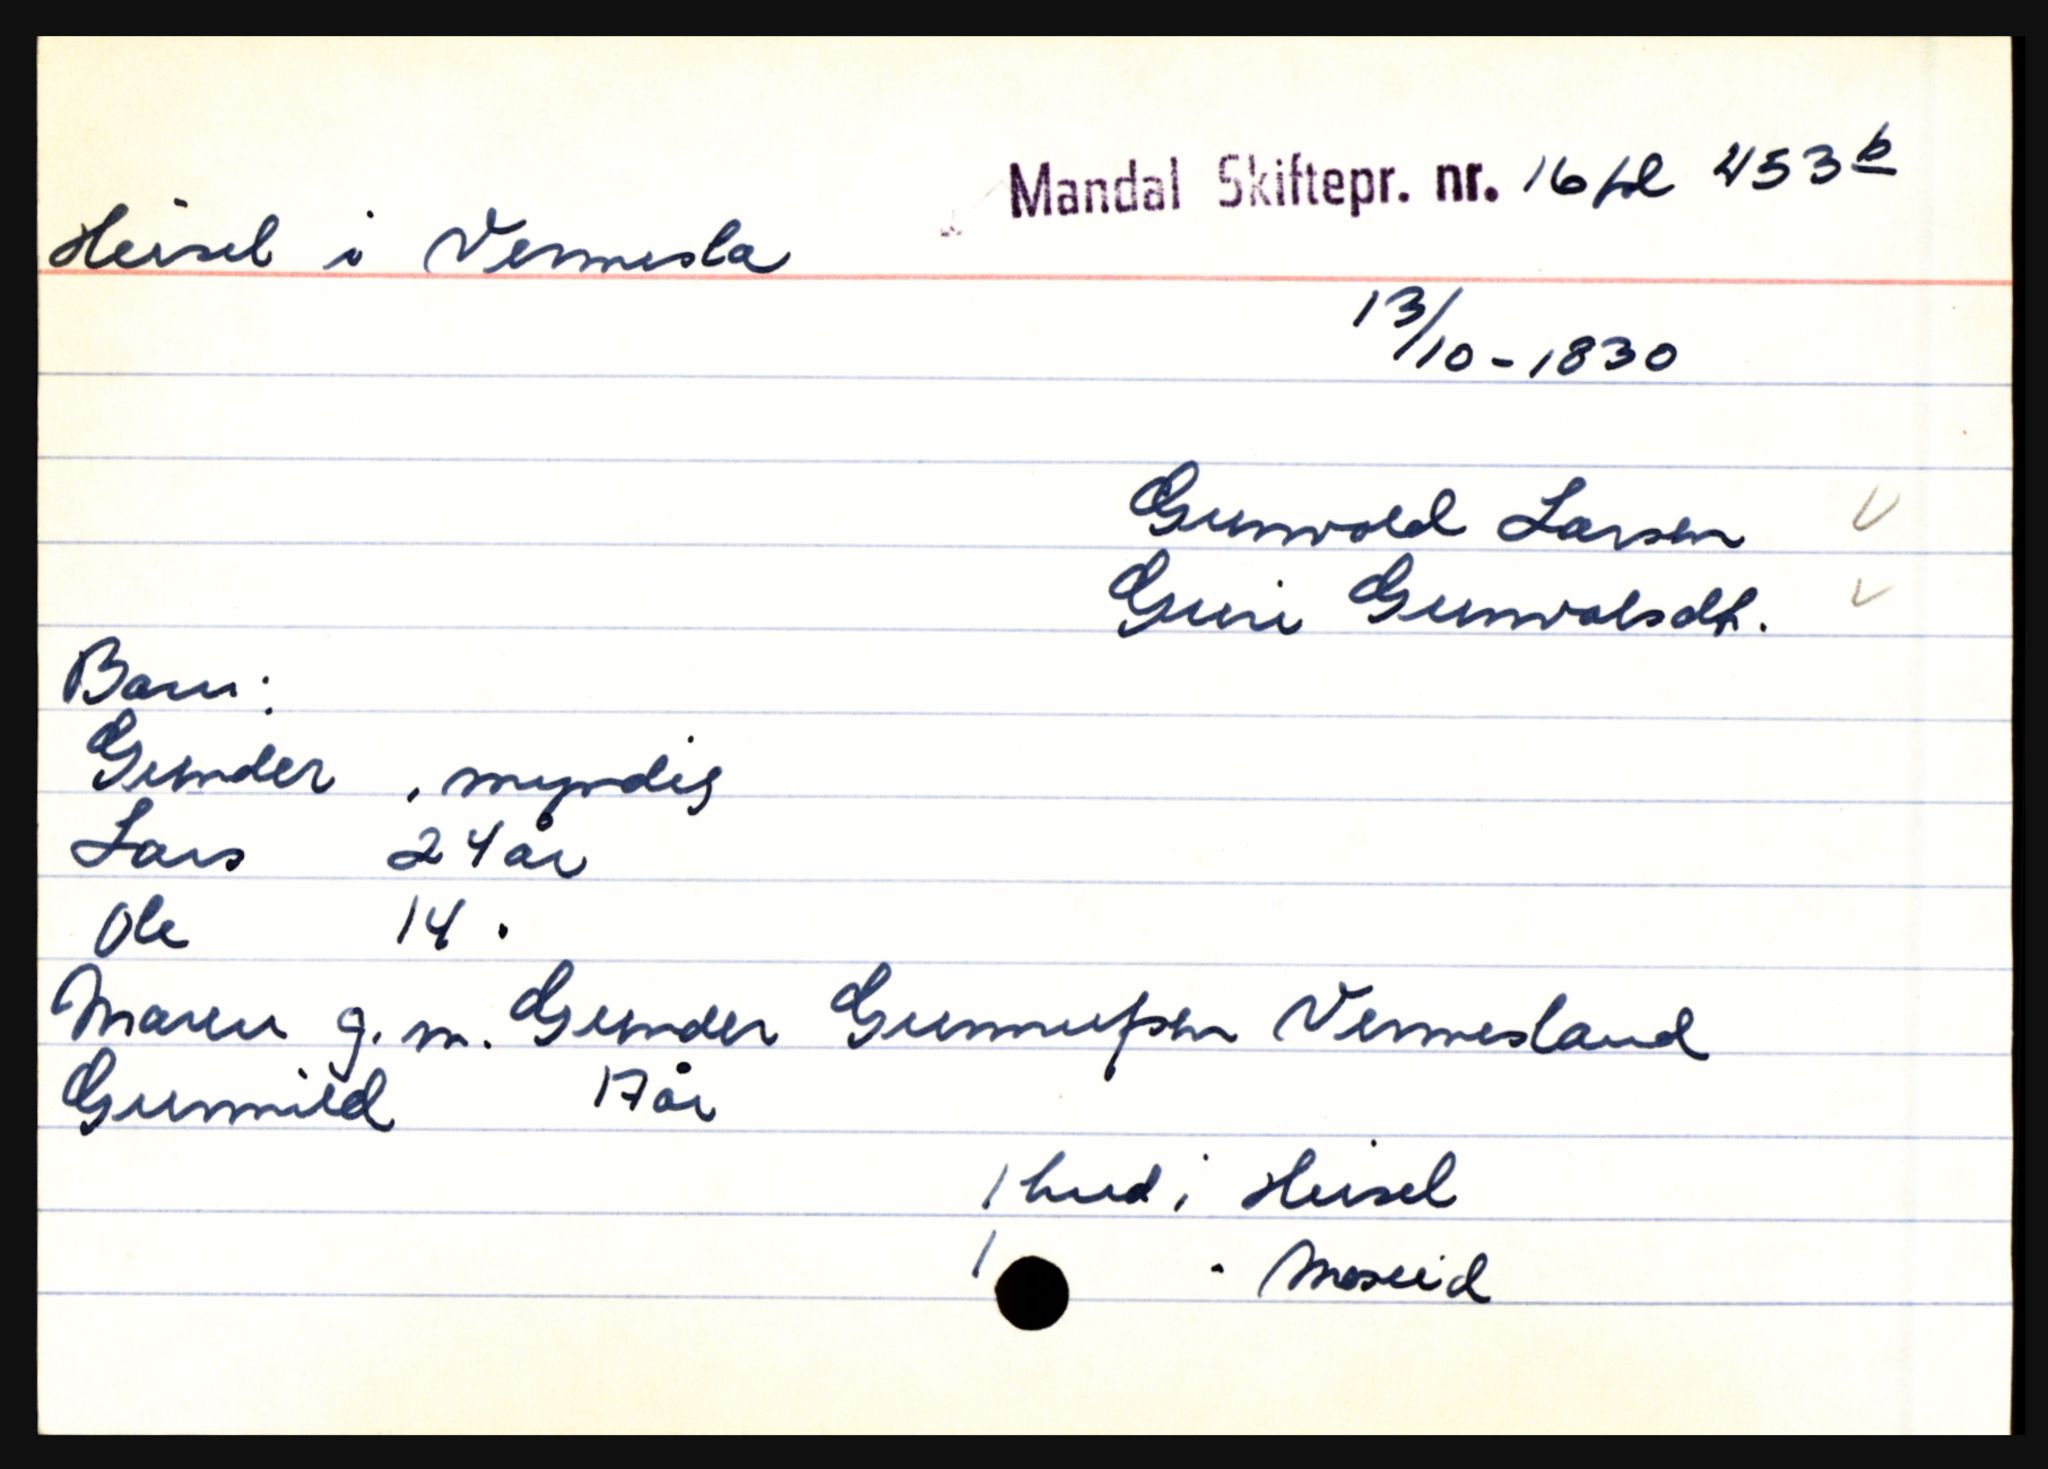 Mandal Skiftepr. nr. 16 fol 453 b
Heisel i Vennesla
13/10-1830
Gunvold Larsen
Guri Gunvolsdt.
Barn:
Gunder , myndig
Lars 24 år
Ole 14 .
Maren g. m. Gunder Gunnufsen Vennesland
Gunnild 17 år
1 hud i Heisel
1 . Moseid